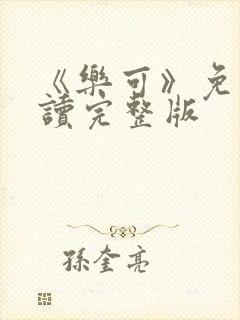 《樂可》免
讀完整版
孫奎亮